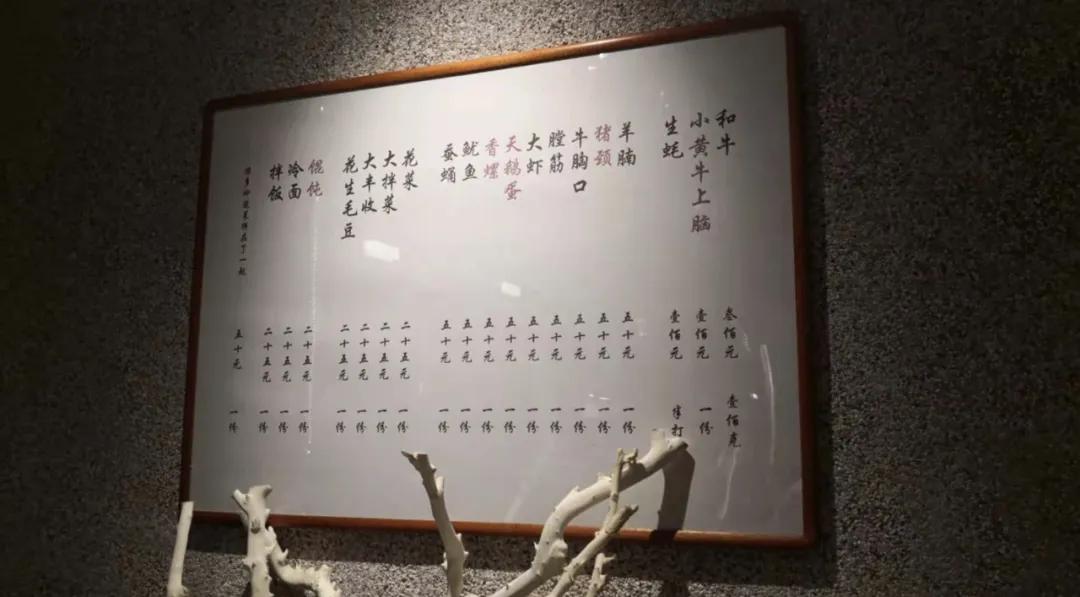 和牛 叁佰元 壹佰克
小黄牛上脑 壹佰元 一份
生蚝 壹佰元 半打
羊腩 五十元 一份
猪颈 五十元 一份
牛胸口 五十元 一份
膛筋 五十元 一份
大虾 五十元 一份
天鹅蛋 五十元 一份
香螺 五十元 一份
鱿鱼 五十元 一份
蚕蛹 五十元 一份
花菜 二十五元 一份
大拌菜 二十五元 一份
大丰收 二十五元 一份
花生毛豆 二十五元 一份
馄饨 二十五元 一份
冷面 二十五元 一份
拌饭 二十五元 一份
在了一起 五十元 一份